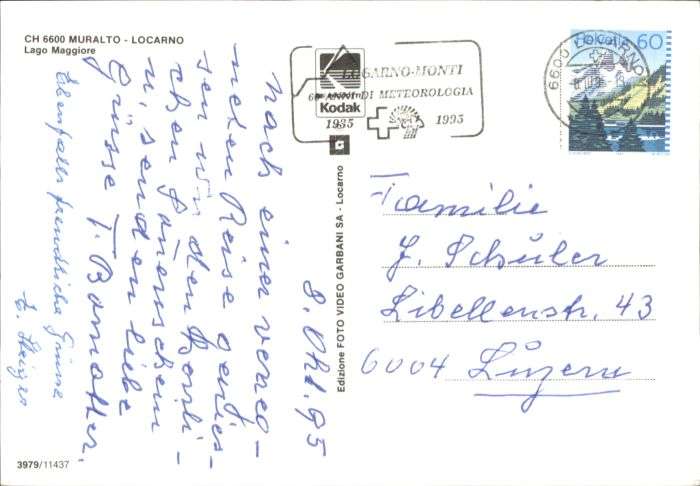 CH 6600 MURALTO - LOCARNO
Lago Maggiore
8. Okt. 95
Nach einer verreg-
neten Reise genies-
sen wir den
chen Sonnenschein
u. senden liebe
Grüsse T. Bomatter.
Ebenfalls freundliche Grüsse
3979/11437
Edizione FOTO VIDEO GARBANI SA - Locarno
Kodak
LOCARNO-MONTI
60 ANNI DI METEOROLOGIA
1935 1995
6600 LOCARNO
Helvetia 60
Familie
J. Schüler
Libellenstr. 43
6004 Luzern